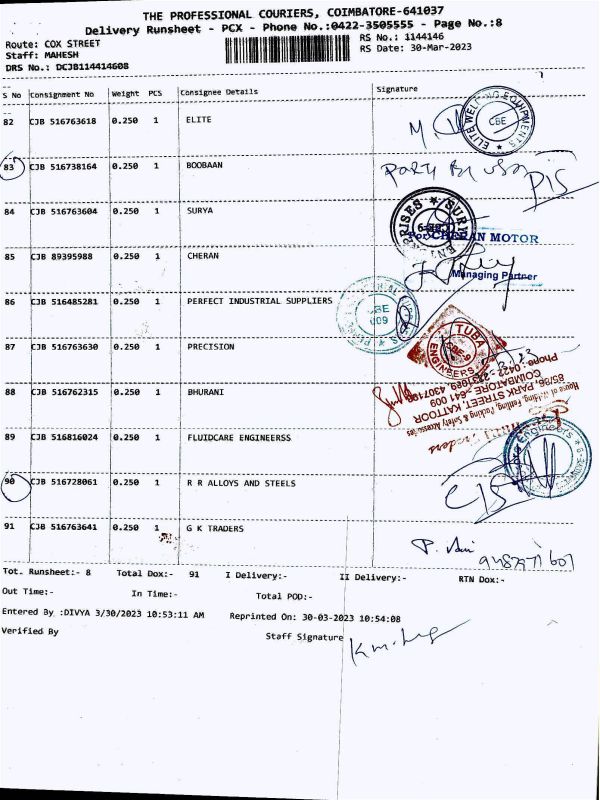 THE PROFESSIONAL COURIERS, COIMBATORE-641037
Delivery Runsheet - PCX - Phone No.:0422-3505555 - Page No.:8
Route: COX STREET RS No.: 1144146
Staff: MAHESH RS Date: 30-Mar-2023
DRS No.: DCJB114414608
S No Consignment No Weight PCS Consignee Details Signature
82 CJB 516763618 0.250 1 ELITE
ELITE WELDING EQUIPMENTS
CBE
83 CJB 516738164 0.250 1 BOOBAAN
84 CJB 516763604 0.250 1 SURYA
For CHERAN MOTOR
85 CJB 89395988 0.250 1 CHERAN
Managing Partner
86 CJB 516485281 0.250 1 PERFECT INDUSTRIAL SUPPLIERS
CBE
009
87 CJB 516763630 0.250 1 PRECISION
TUBA
CBE-9
ENGINEERS
88 CJB 516762315 0.250 1 BHURANI
House of Welding, Fettling, Packing & Safety Accessories
85/86, PARK STREET, KATTOOR
COIMBATORE - 641 009
89 CJB 516816024 0.250 1 FLUIDCARE ENGINEERSS
Traders
Engineers
90 CJB 516728061 0.250 1 R R ALLOYS AND STEELS
91 CJB 516763641 0.250 1 G K TRADERS
Tot. Runsheet:- 8 Total Dox:- 91 I Delivery:- II Delivery:- RTN Dox:-
Out Time:- In Time:- Total POD:-
Entered By :DIVYA 3/30/2023 10:53:11 AM Reprinted On: 30-03-2023 10:54:08
Verified By Staff Signature